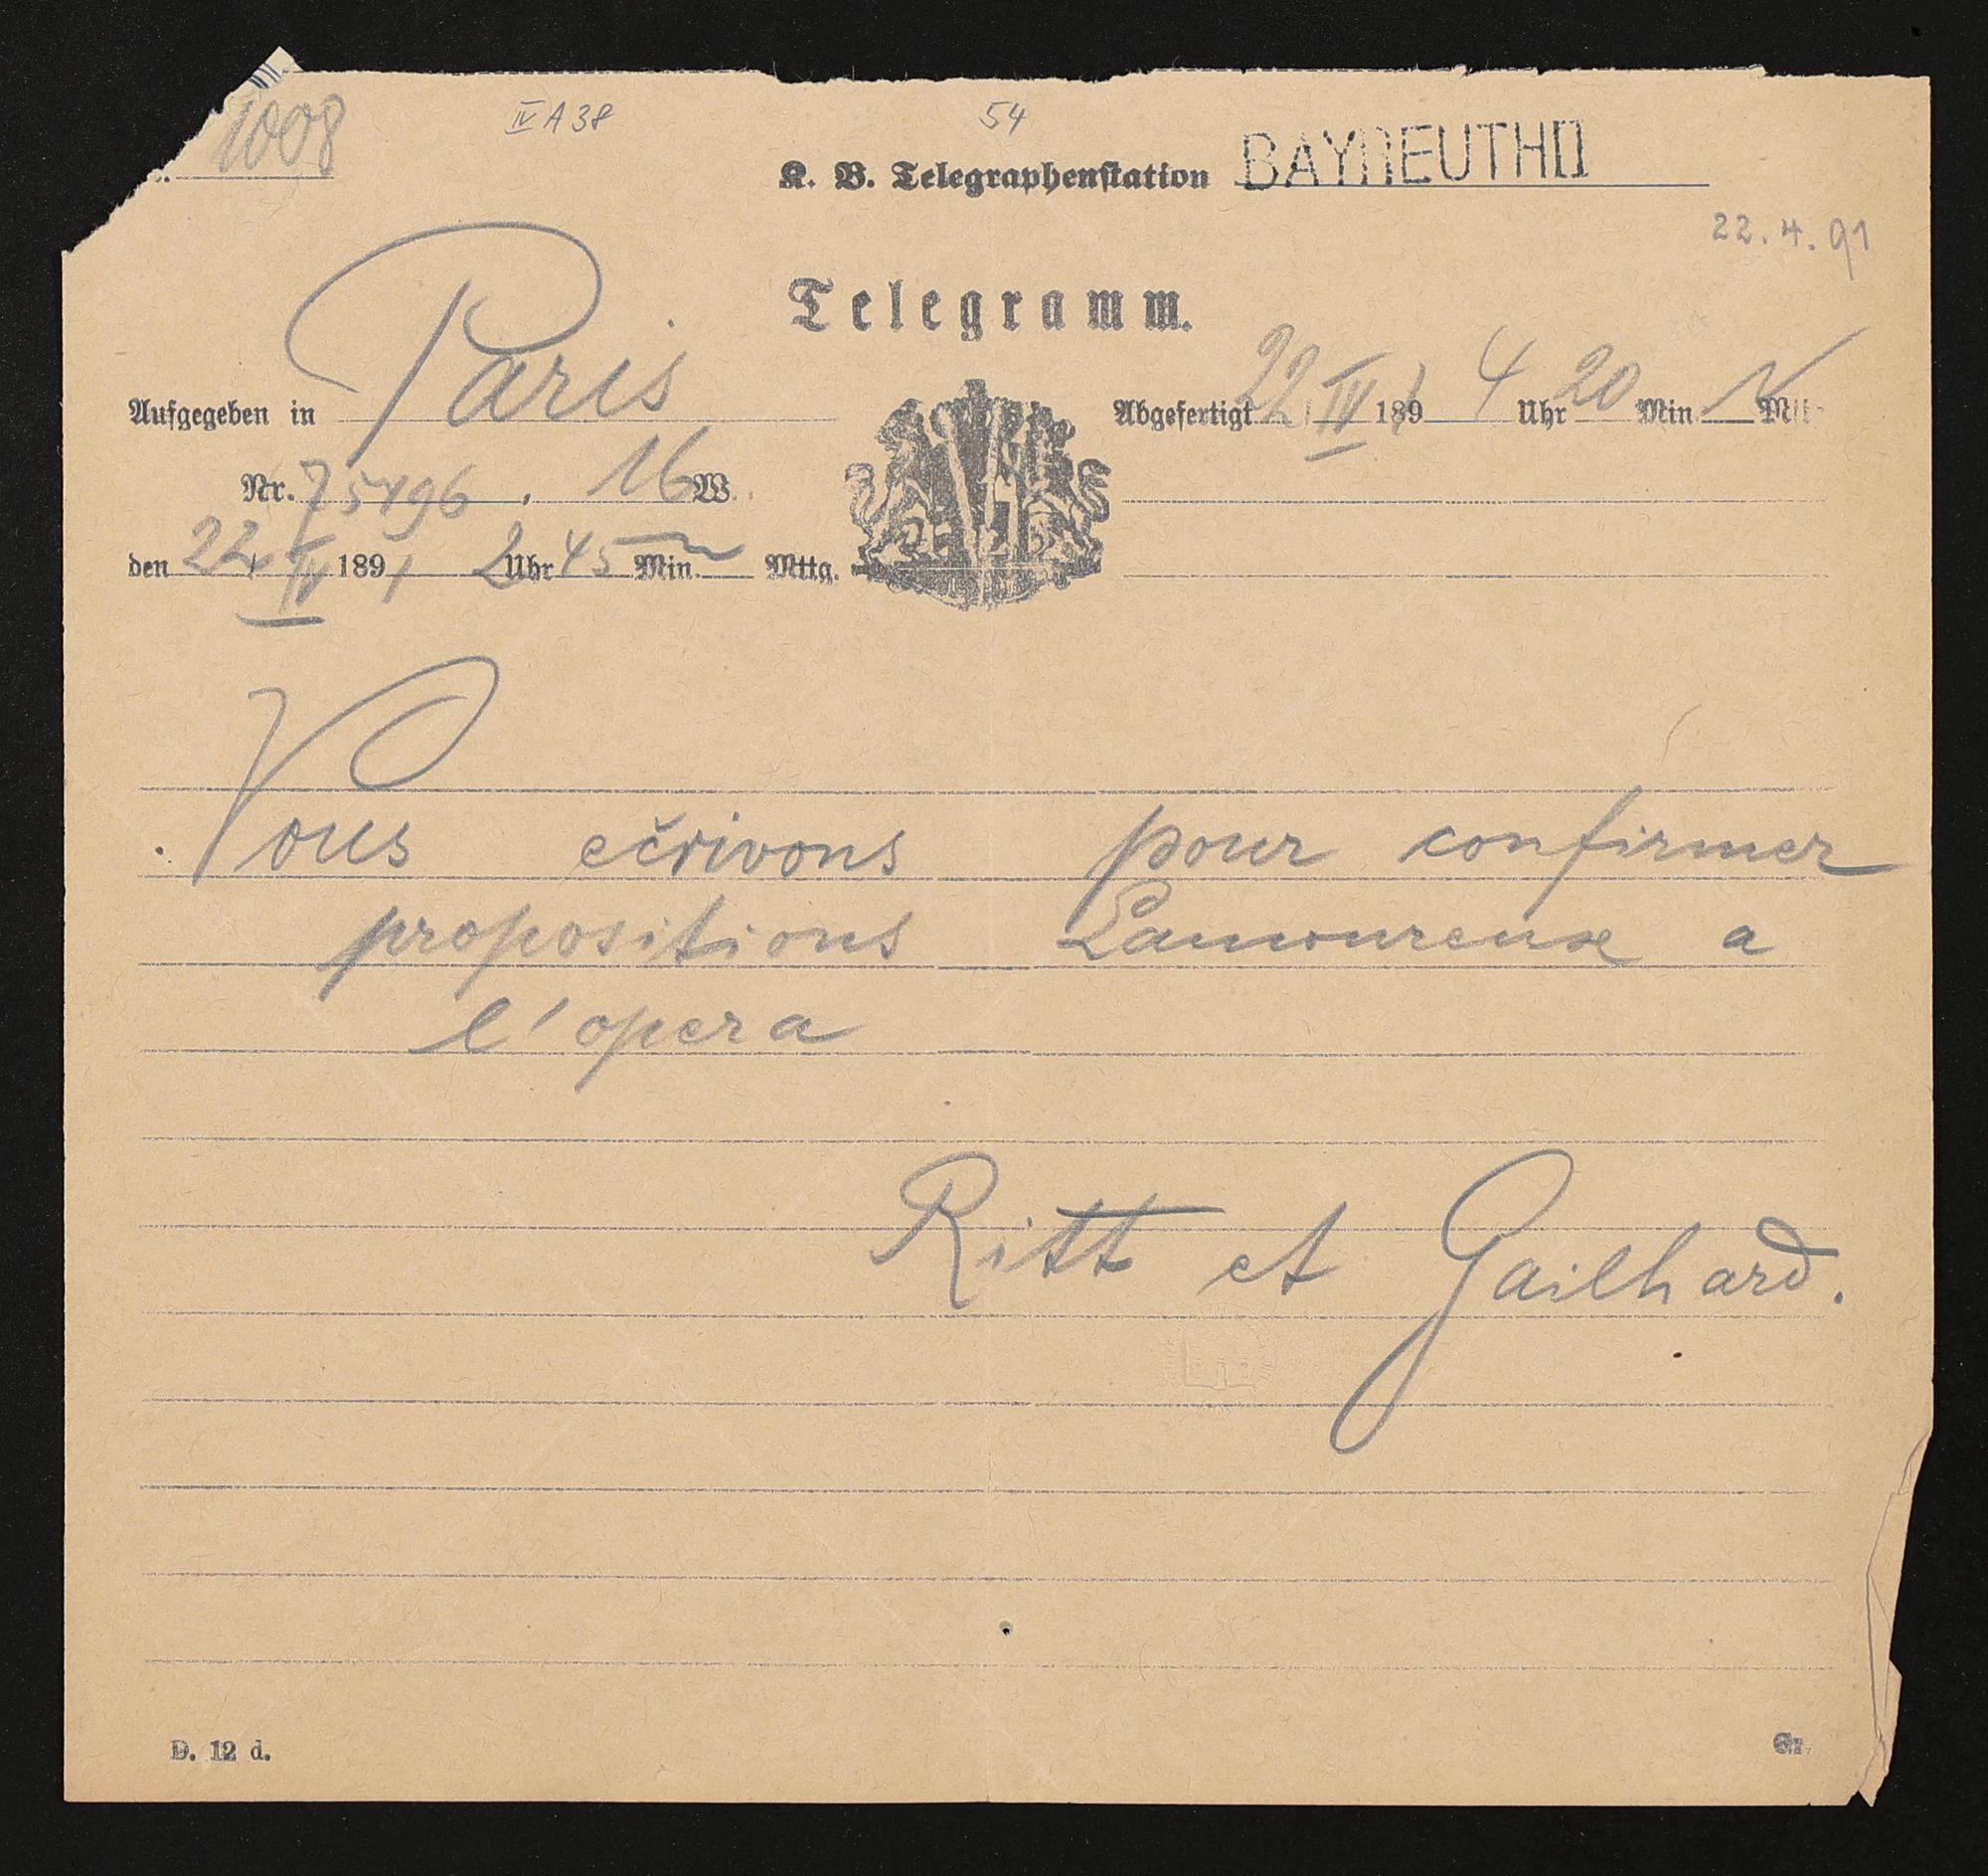 1008
IV A 38
54
K. B. Telegraphenstation BAYREUTH II
22.4.91
Telegramm.
Aufgegeben in Paris
Abgefertigt 22 IV 1891 4 Uhr 20 Min. N Mit
Nr. 75496, 16 W.
den 22 IV 1891 2 Uhr 45 Min. Mttg.
Vous ecrivons pour confirmer
propositions Lamoureux a
l'opera
Ritt et Gailhard.
D. 12 d.